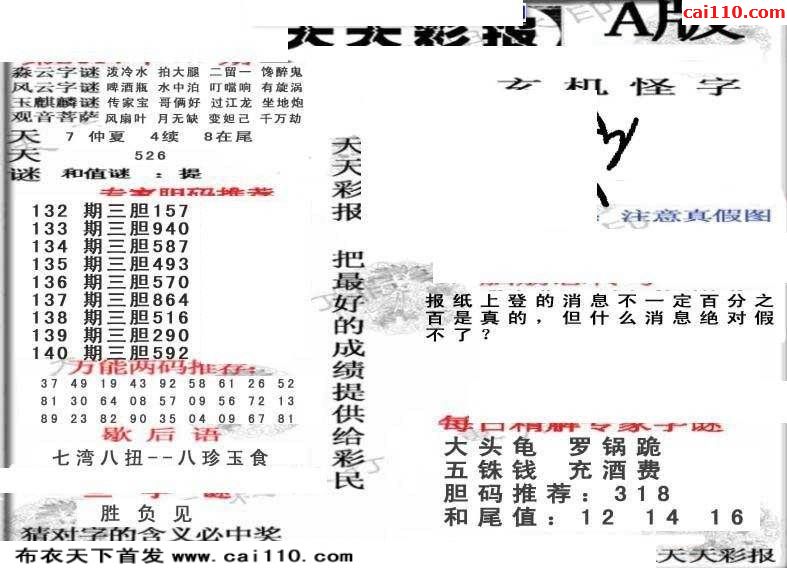 cai110.com
天天彩报 A版
淼云字谜 泼冷水 拍大腿 二留一 馋醉鬼
风云字谜 啤酒瓶 水中泊 叮噹响 有旋涡
玉麒麟谜 传家宝 哥俩好 过江龙 坐地炮
观音菩萨 风扇叶 月无缺 变妲己 千万劫
天 7 仲夏 4续 8在尾
天 526
谜 和值谜 ：提
专家胆码推荐
132 期三胆157
133 期三胆940
134 期三胆587
135 期三胆493
136 期三胆570
137 期三胆864
138 期三胆516
139 期三胆290
140 期三胆592
万能两码推荐:
37 49 19 43 92 58 61 26 52
81 30 64 08 57 09 56 72 13
89 23 82 90 35 04 09 67 81
歇后语
七湾八扭--八珍玉食
三字谜
胜负见
猜对字的含义必中奖
布衣天下首发 www.cai110.com
天天彩报 把最好的成绩提供给彩民
玄机怪字
：注意真假图
报纸上登的消息不一定百分之
百是真的，但什么消息绝对假
不了？
每日精解专家字谜
大头龟 罗锅跪
五铢钱 充酒费
胆码推荐：318
和尾值：12 14 16
天天彩报